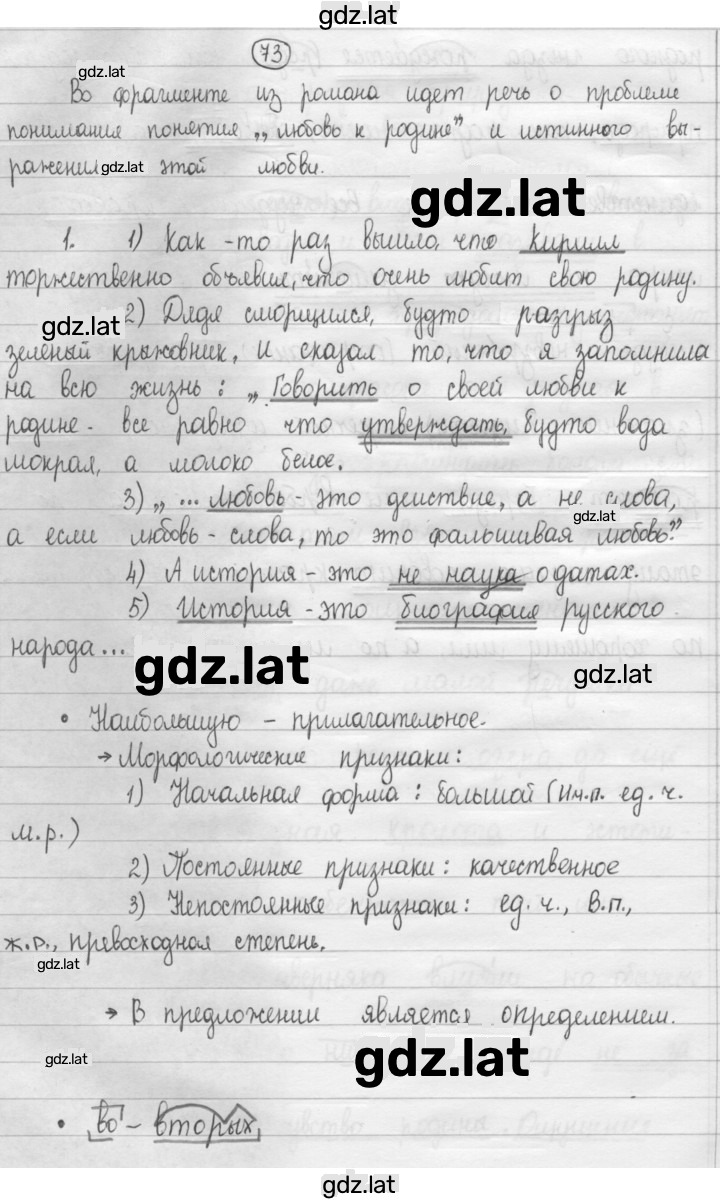 gdz.lat
73
gdz.lat
Во фрагменте из романа идет речь о проблеме
понимания понятия „любовь к родине" и истинного вы-
ражения gdz.lat этой любви.
gdz.lat
1. 1) Как-то раз вышло, что Кирилл
торжественно объявил, что очень любит свою родину.
gdz.lat
2) Дядя сморщился, будто разгрыз
зелёный крыжовник, и сказал то, что я запомнила
на всю жизнь: „Говорить о своей любви к
родине - все равно что утверждать, будто вода
мокрая, а молоко белое.
3) „... любовь - это действие, а не слова,
gdz.lat
а если любовь - слова, то это фальшивая любовь."
4) А история - это не наука о датах.
5) История - это биография русского
народа...
gdz.lat
gdz.lat
• Наибольшую - прилагательное.
→ Морфологические признаки:
1) Начальная форма: большой (Им.п. ед.ч.
м.р.)
2) Постоянные признаки: качественное
3) Непостоянные признаки: ед.ч., В.п.,
ж.р., превосходная степень.
gdz.lat
→ В предложении является определением.
gdz.lat
gdz.lat
• во-вторых,
gdz.lat